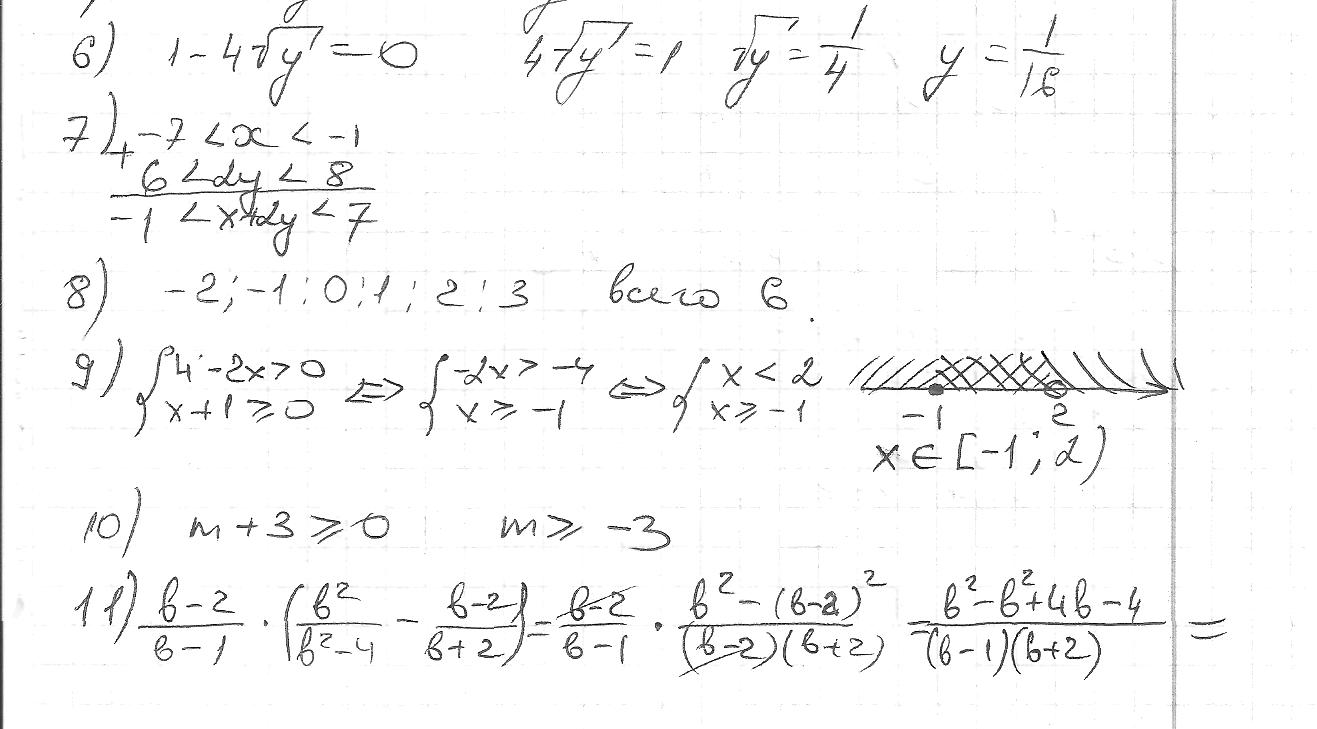 6) 1 - 4√y = 0   4√y = 1   √y = 1/4   y = 1/16
7) + -7 < x < -1
6 < 2y < 8
-1 < x+2y < 7
8) -2; -1; 0; 1; 2; 3 всего 6.
9) { 4 - 2x > 0 ; x + 1 ≥ 0 ⇔ { -2x > -4 ; x ≥ -1 ⇔ { x < 2 ; x ≥ -1
-1 2
x ∈ [-1; 2)
10) m + 3 ≥ 0   m ≥ -3
11) (в-2)/(в-1) · (в²/(в²-4) - (в-2)/(в+2)) = (в-2)/(в-1) · (в²-(в-2)²)/((в-2)(в+2)) = (в²-в²+4в-4)/((в-1)(в+2)) =